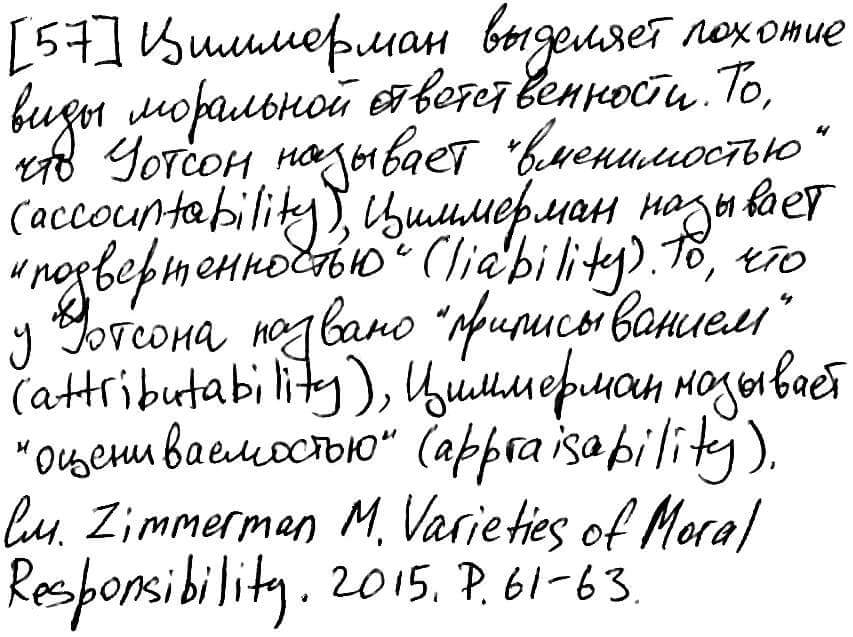 [57] Циммерман выделяет похожие
виды моральной ответственности. То,
что Уотсон называет "вменимостью"
(accountability), Циммерман называет
"подверженностью" (liability). То, что
у Уотсона названо "приписыванием"
(attributability), Циммерман называет
"оцениваемостью" (appraisability).
См. Zimmerman M. Varieties of Moral
Responsibility. 2015. P. 61-63.